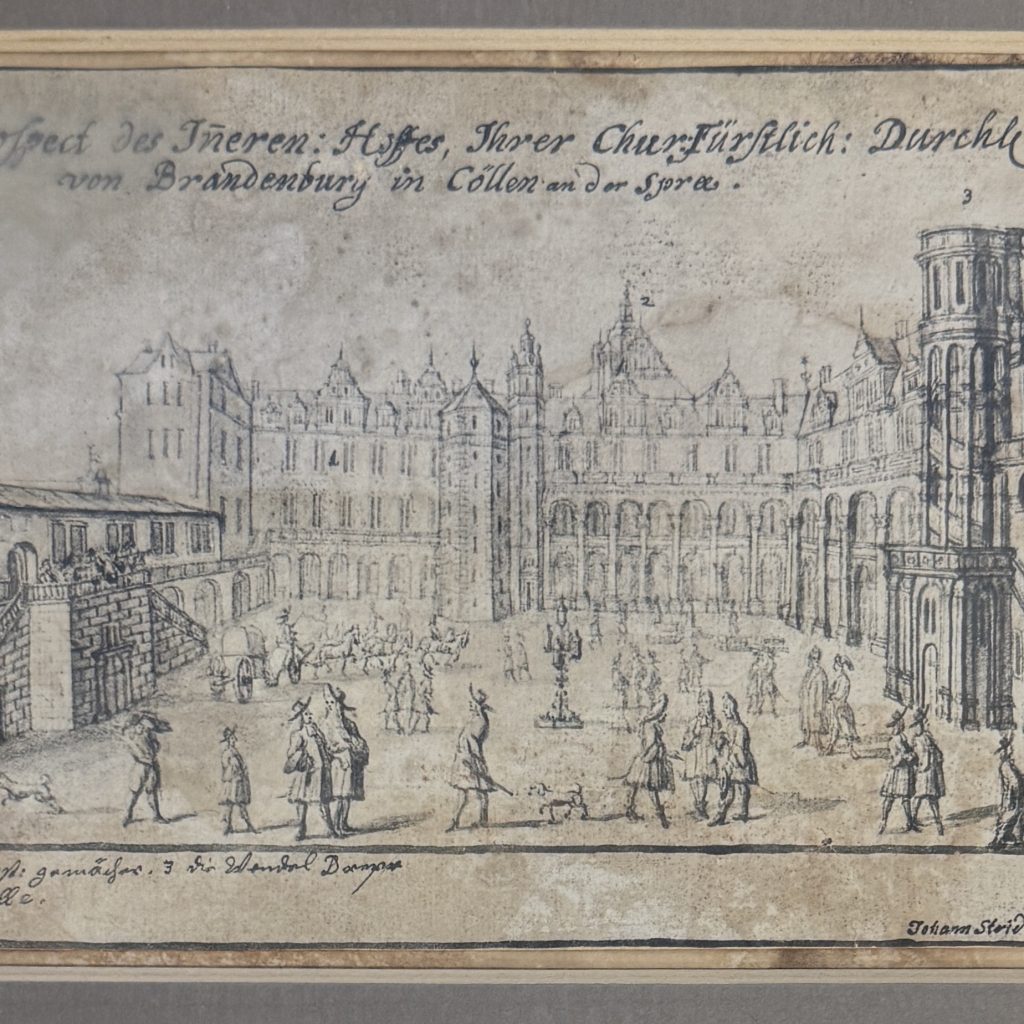 ospect des Iñeren: Hoffes, Ihrer Churfürstlich: Durchle
von Brandenburg in Cöllen an der Spree.
3
2
1
st: gemächer. 3 die Wendel Drepx
lle.
Johann Strid